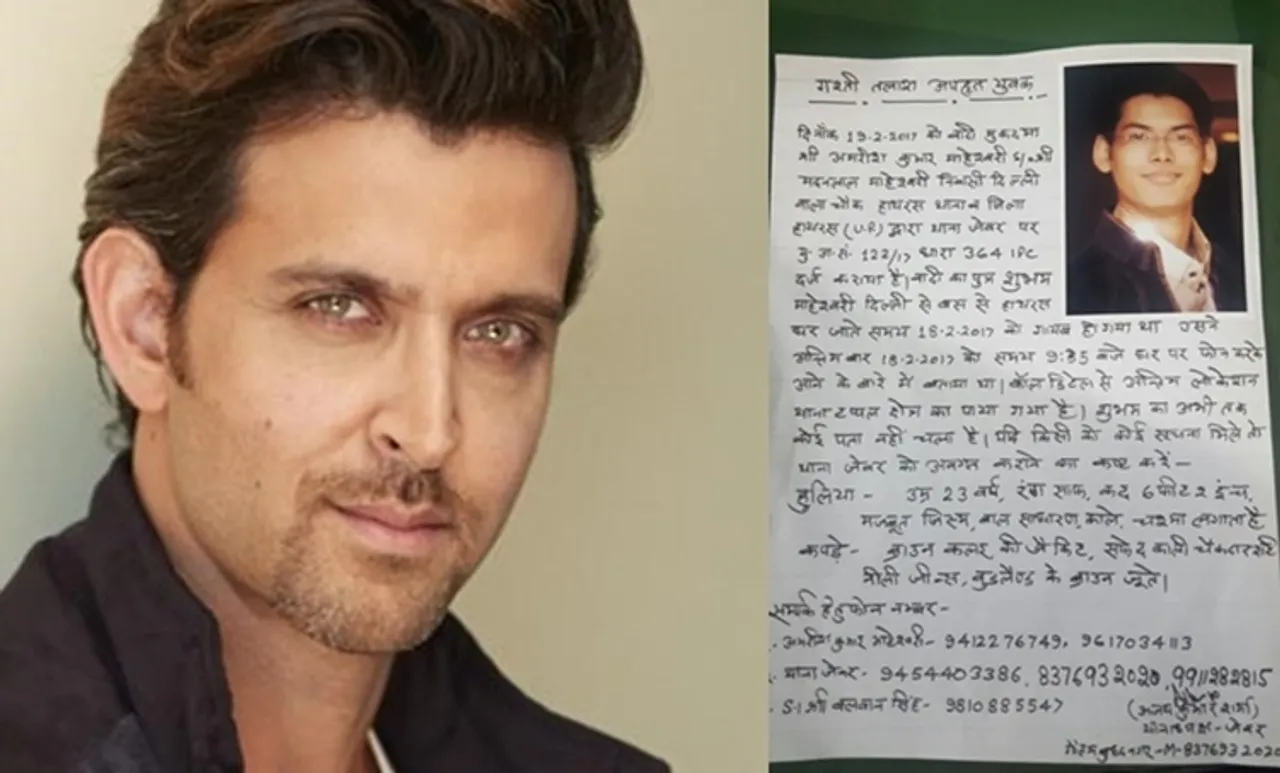 गश्ती तलाश अपहृत युवक
दिनाँक 19-2-2017 को वादी मुकदमा
श्री अमरीश कुमार माहेश्वरी S/o श्री
मदनलाल माहेश्वरी निवासी दिल्ली
वाला चौक हाथरस थाना व जिला
हाथरस (U.P.) द्वारा थाना जेवर पर
मु.अ.सं. 122/17 धारा 364 IPC
दर्ज कराया है। वादी का पुत्र शुभम
माहेश्वरी दिल्ली से बस से हाथरस
घर जाते समय 18-2-2017 को गायब हो गया था उसने
अन्तिम बार 18-2-2017 को समय 9:35 बजे घर पर फोन करके
आने के बारे में बताया था। कॉल डिटेल से अन्तिम लोकेशन
थाना टप्पल क्षेत्र का पाया गया है। शुभम का अभी तक
कोई पता नहीं चला है। यदि किसी को कोई सूचना मिले तो
थाना जेवर को अवगत कराने का कष्ट करें -
हुलिया - उम्र 23 वर्ष, रंग साफ, कद 6 फीट 2 इन्च,
मजबूत जिस्म, बाल साधारण, काले, चश्मा लगाता है
कपड़े - ब्राउन कलर की जैकिट, सफेद काली चैकदार शर्ट
नीली जीन्स, वुडलैण्ड के ब्राउन जूते।
सम्पर्क हेतु फोन नम्बर -
अमरीश कुमार माहेश्वरी - 9412276749, 9617034113
थाना जेवर - 9454403386, 8376932020, 9911282815
S.I श्री बलवान सिंह - 9810885547 (अजय कुमार शर्मा)
थानाध्यक्ष - जेवर
गौतमबुद्धनगर - M - 837693 2020